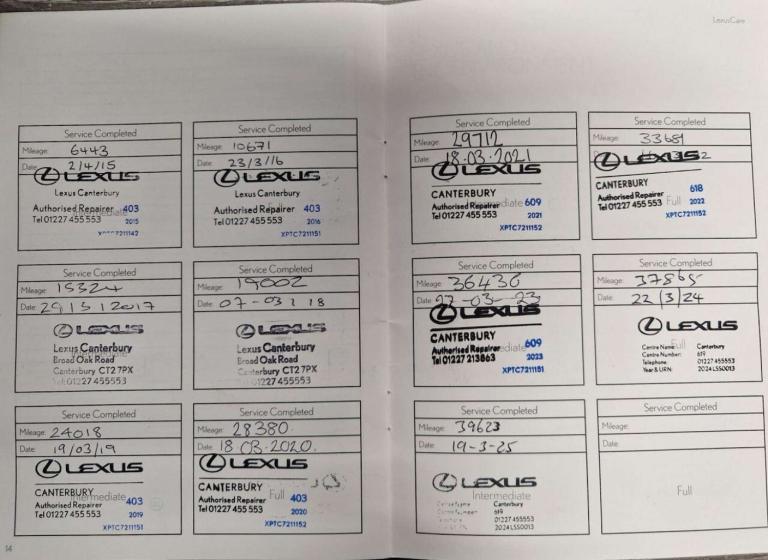 LexusCare
Service Completed
Mileage: 6443
Date 2/4/15
LEXUS
Lexus Canterbury
Intermediate
Authorised Repairer 403
Tel 01227 455 553 2015
Service Completed
Mileage: 10671
Date: 23/3/16
LEXUS
Lexus Canterbury
Full
Authorised Repairer 403
Tel 01227 455 553 2016
XPTC7211151
Service Completed
Mileage: 15324
Date: 29 15 1 2017
LEXUS
Lexus Canterbury
Intermediate
Broad Oak Road
Canterbury CT2 7PX
Tel: 01227 455553
Service Completed
Mileage: 19002
Date: 07-03 18
LEXUS
Lexus Canterbury
Full
Broad Oak Road
Canterbury CT2 7PX
01227 455553
Service Completed
Mileage: 24018
Date: 19/03/19
LEXUS
CANTERBURY
Intermediate
Authorised Repairer 403
Tel 01227 455 553 2019
XPTC7211151
Service Completed
Mileage: 28380
Date: 18 03-2020.
LEXUS
CANTERBURY
Full
Authorised Repairer 403
Tel 01227 455 553 2020
XPTC7211152
14
Service Completed
Mileage: 29712
Date: 18-03-2021
LEXUS
CANTERBURY
Intermediate
Authorised Repairer 609
Tel 01227 455 553 2021
XPTC7211152
Service Completed
Mileage: 33681
LEXUS
CANTERBURY 618
Authorised Repairer Full 2022
Tel 01227 455 553
XPTC7211152
Service Completed
Mileage: 36430
Date: 27-03-23
LEXUS
CANTERBURY
Intermediate
Authorised Repairer 609
Tel 01227 213863 2023
XPTC7211151
Service Completed
Mileage: 37865
Date: 22/3/24
LEXUS
Full
Centre Name: Canterbury
Centre Number: 619
Telephone 01227 455553
Year & URN: 2024LSS0013
Service Completed
Mileage: 39623
Date 19-3-25
LEXUS
Intermediate
Canterbury
619
01227 455553
2024LSS0013
Service Completed
Mileage:
Date:
Full